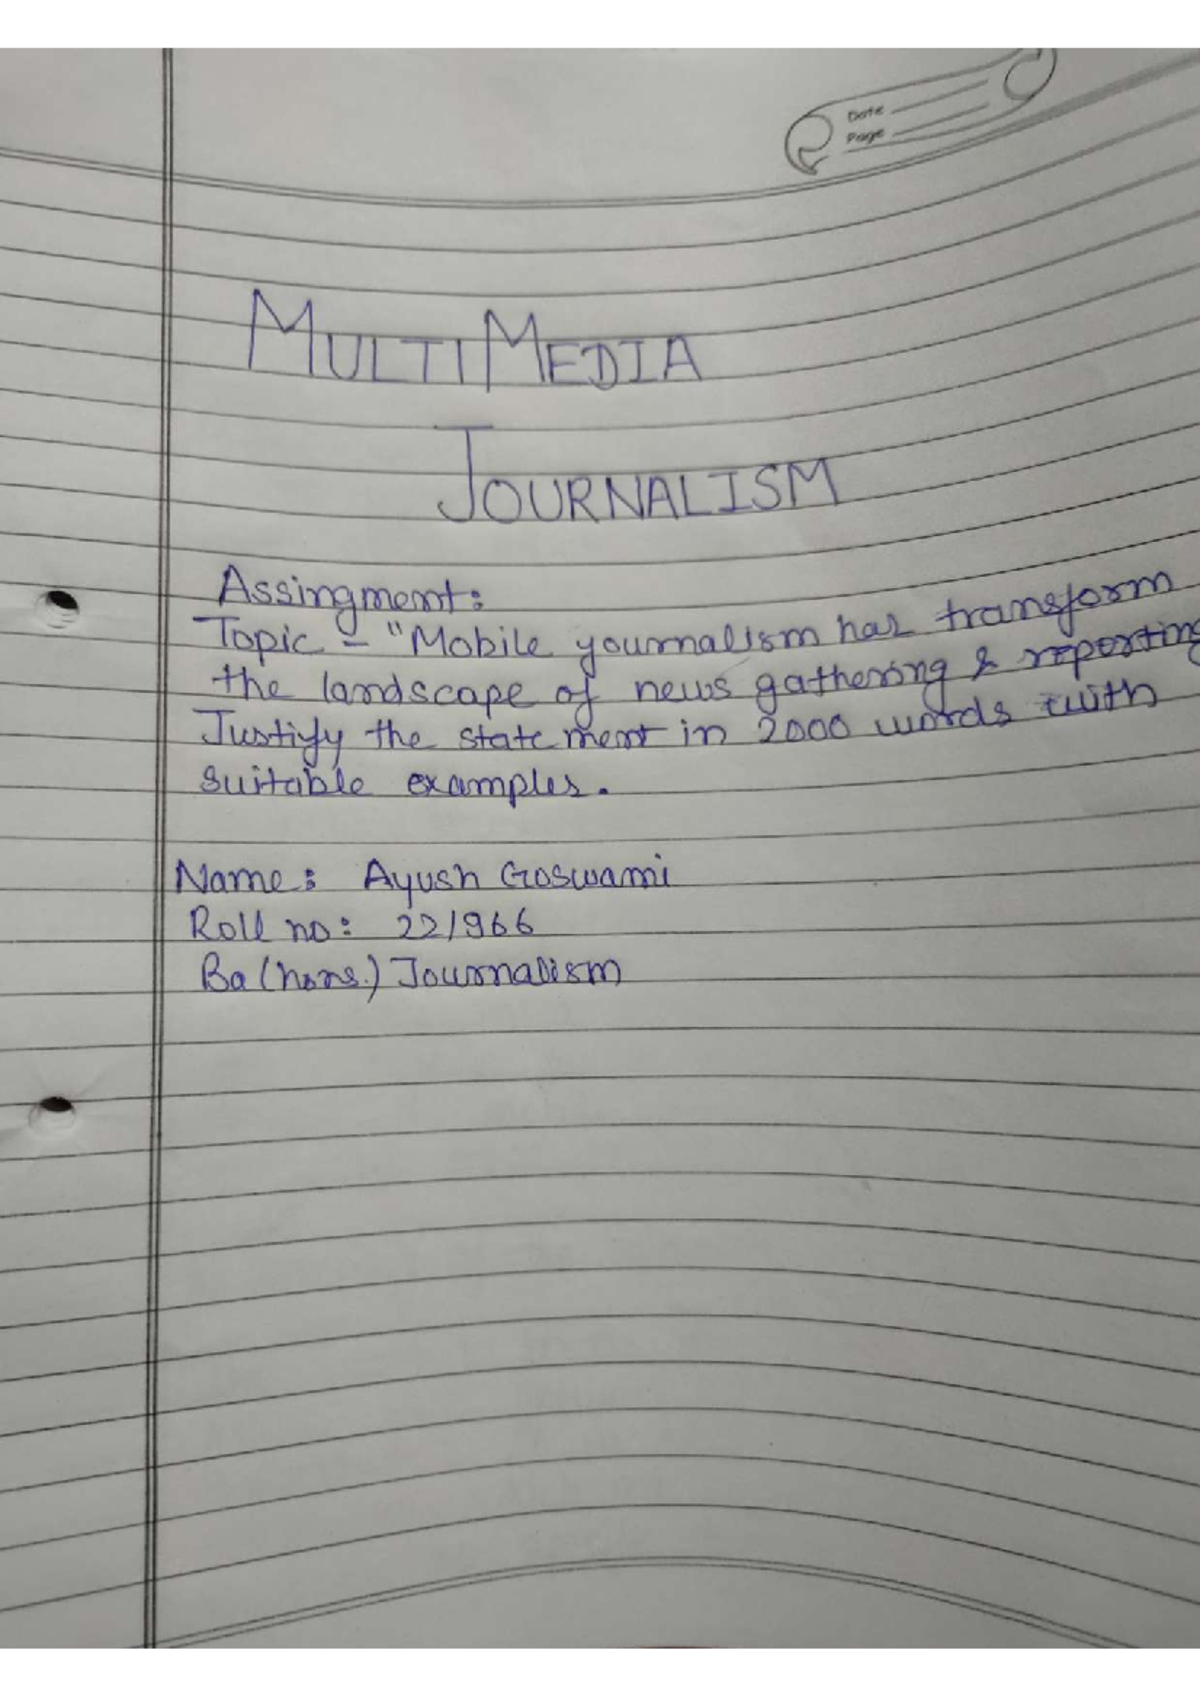 Date
Page
MULTIMEDIA
JOURNALISM
Assingment:
Topic - "Mobile yournalism has transform
the landscape of news gathering & reporting
Justify the statement in 2000 words with
suitable examples.
Name: Ayush Goswami
Roll no: 22/966
Ba (hons.) Journalism